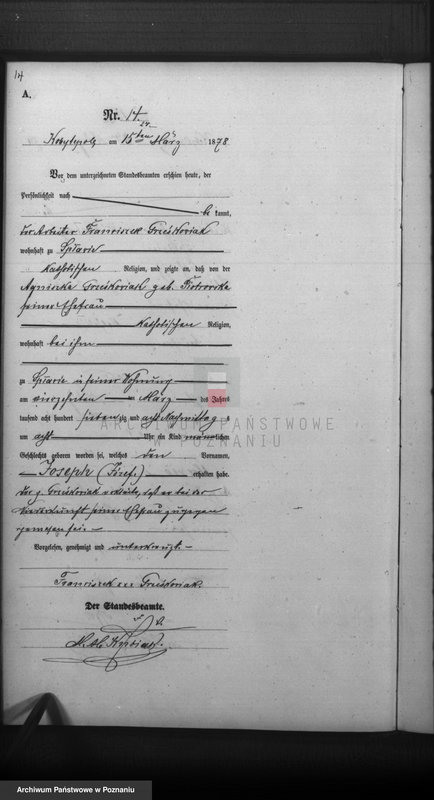 14
A.
Nr. 14
am 15ten März 1878
Vor dem unterzeichneten Standesbeamten erschien heute, der
Persönlichkeit nach
be kannt,
der Arbeiter Franciszek
wohnhaft zu
katholischen Religion, und zeigte an, daß von der
Agnieszka geb. Piotrowska
seiner Ehefrau
katholischen Religion,
wohnhaft bei ihm
zu in seiner Wohnung
am vierzehnten März des Jahres
tausend acht hundert siebenzig und acht Nachmittag s
um acht Uhr ein Kind männlichen
Geschlechts geboren worden sei, welches den Vornamen
Joseph (Józef) erhalten habe.
daß er bei der
Niederkunft seiner Ehefrau zugegen
gewesen sei.
Vorgelesen, genehmigt und unterkreuzt
Franciszek xxx
Der Standesbeamte.
ARCHIWUM PAŃSTWOWE
W POZNANIU
Archiwum Państwowe w Poznaniu